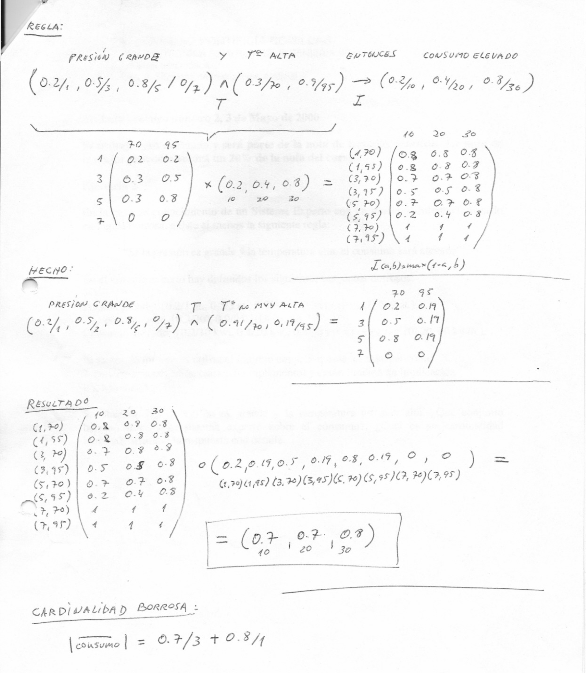 REGLA:
PRESIÓN GRANDE Y Tª ALTA ENTONCES CONSUMO ELEVADO
(0.2/1, 0.5/3, 0.8/5 / 0/7) ∧ (0.3/70, 0.9/95) → (0.2/10, 0.4/20, 0.8/30)
T I
70 95
1 0.2 0.2
3 0.3 0.5
5 0.3 0.8
7 0 0
× (0.2, 0.4, 0.8) =
10 20 30
10 20 30
(1,70) 0.8 0.8 0.8
(1,95) 0.8 0.8 0.8
(3,70) 0.7 0.7 0.8
(3,95) 0.5 0.5 0.8
(5,70) 0.7 0.7 0.8
(5,95) 0.2 0.4 0.8
(7,70) 1 1 1
(7,95) 1 1 1
I(a,b)=max(1-a,b)
HECHO:
PRESION GRANDE T Tª NO MUY ALTA
(0.2/1, 0.5/3, 0.8/5, 0/7) ∧ (0.91/70, 0.19/95) =
70 95
1 0.2 0.19
3 0.5 0.19
5 0.8 0.19
7 0 0
RESULTADO
10 20 30
(1,70) 0.8 0.8 0.8
(1,95) 0.8 0.8 0.8
(3,70) 0.7 0.8 0.8
(3,95) 0.5 0.5 0.8
(5,70) 0.7 0.7 0.8
(5,95) 0.2 0.4 0.8
(7,70) 1 1 1
(7,95) 1 1 1
o (0.2, 0.19, 0.5, 0.19, 0.8, 0.19, 0, 0) =
(1,70)(1,95)(3,70)(3,95)(5,70)(5,95)(7,70)(7,95)
= (0.7, 0.7, 0.8)
10 20 30
CARDINALIDAD BORROSA:
|consumo| = 0.7/3 + 0.8/1